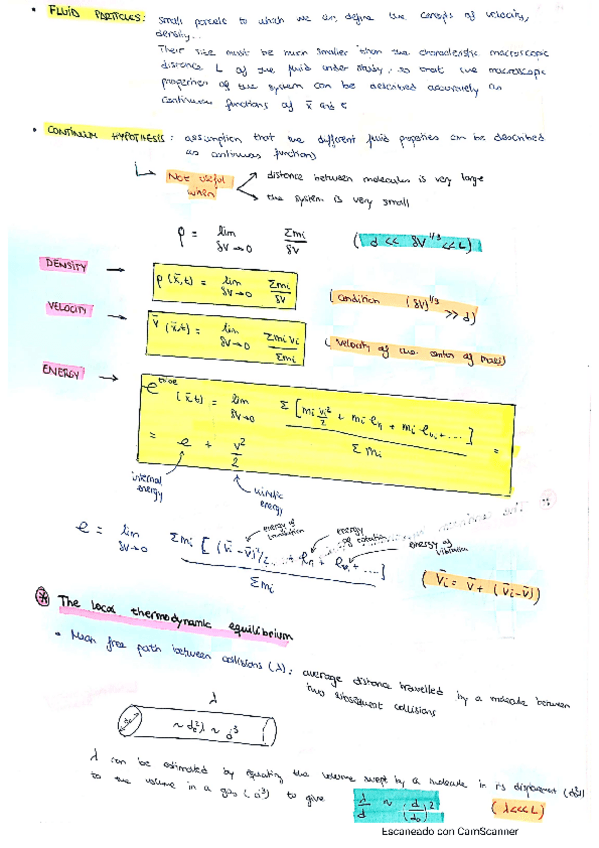 • FLUID PARTICLES: small parcels to which we can define the concepts of velocity,
density...
Their size must be much smaller than the characteristic macroscopic
distance L of the fluid under study, so that the macroscopic
properties of the system can be described accurately as
continuous functions of x̄ and t
• CONTINUUM HYPOTHESIS: assumption that the different fluid properties can be described
as continuous functions
Not useful when → distance between molecules is very large
→ the system is very small
ρ = lim δV→0 Σmi / δV (d << δV^1/3 << L)
DENSITY → ρ(x̄,t) = lim δV→0 Σmi / δV (Condition (δV)^1/3 >> d)
VELOCITY → v̄(x̄,t) = lim δV→0 Σmi vi / Σmi (velocity of the center of mass)
ENERGY → e (x̄,t) = lim δV→0 Σ [mi vi²/2 + mi eri + mi evi + ...] / Σmi =
= e + v²/2
internal energy
kinetic energy
e = lim δV→0 Σmi [(v̄i - v̄)²/2 ... + eri + evi + ...] / Σmi
energy of translation
energy of rotation
energy of vibration
(v̄i = v̄ + (v̄i - v̄))
* The local thermodynamic equilibrium
• Mean free path between collisions (λ): average distance travelled by a molecule between
two subsequent collisions
λ
~ do²λ ~ d³
λ can be estimated by equating the volume swept by a molecule in its displacement (do²λ)
to the volume in a gas (d³) to give λ/d ~ (d/do)² (λ<<<L)
Escaneado con CamScanner